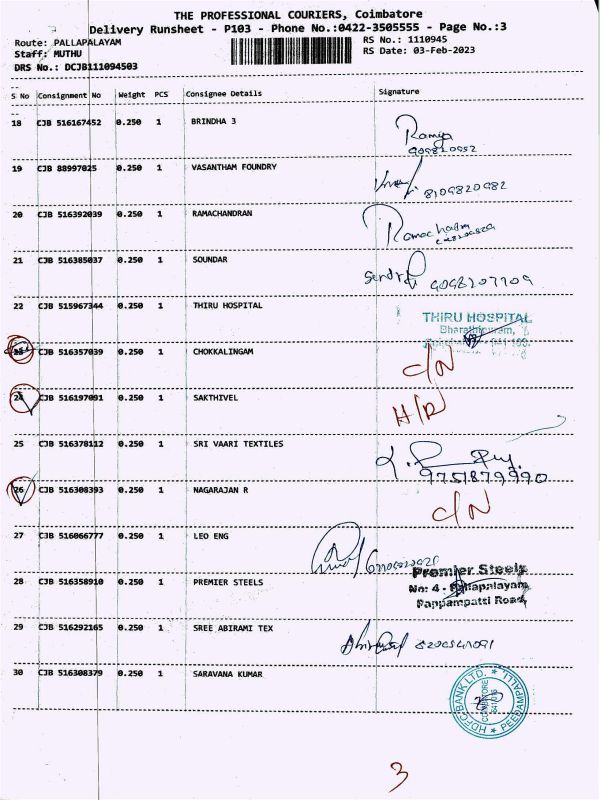 THE PROFESSIONAL COURIERS, Coimbatore
Delivery Runsheet - P103 - Phone No.:0422-3505555 - Page No.:3
Route: PALLAPALAYAM
Staff: MUTHU
DRS No.: DCJB111094503
RS No.: 1110945
RS Date: 03-Feb-2023
S No Consignment No Weight PCS Consignee Details Signature
18 CJB 516167452 0.250 1 BRINDHA 3
Ramya
19 CJB 88997825 0.250 1 VASANTHAM FOUNDRY
8109820982
20 CJB 516392039 0.250 1 RAMACHANDRAN
21 CJB 516385037 0.250 1 SOUNDAR
9098207709
22 CJB 515967344 0.250 1 THIRU HOSPITAL
THIRU HOSPITAL
CJB 516357039 0.250 1 CHOKKALINGAM
C/N
24 CJB 516197091 0.250 1 SAKTHIVEL
H/R
25 CJB 516378112 0.250 1 SRI VAARI TEXTILES
9751879990
26 CJB 516308393 0.250 1 NAGARAJAN R
C/N
27 CJB 516066777 0.250 1 LEO ENG
28 CJB 516358910 0.250 1 PREMIER STEELS
Premier Steels
No: 4 - Pallapalayam
Pappampatti Road,
29 CJB 516292165 0.250 1 SREE ABIRAMI TEX
30 CJB 516308379 0.250 1 SARAVANA KUMAR
HDFC BANK LTD. * PEEDAMPALLI *
COIMBATORE
3